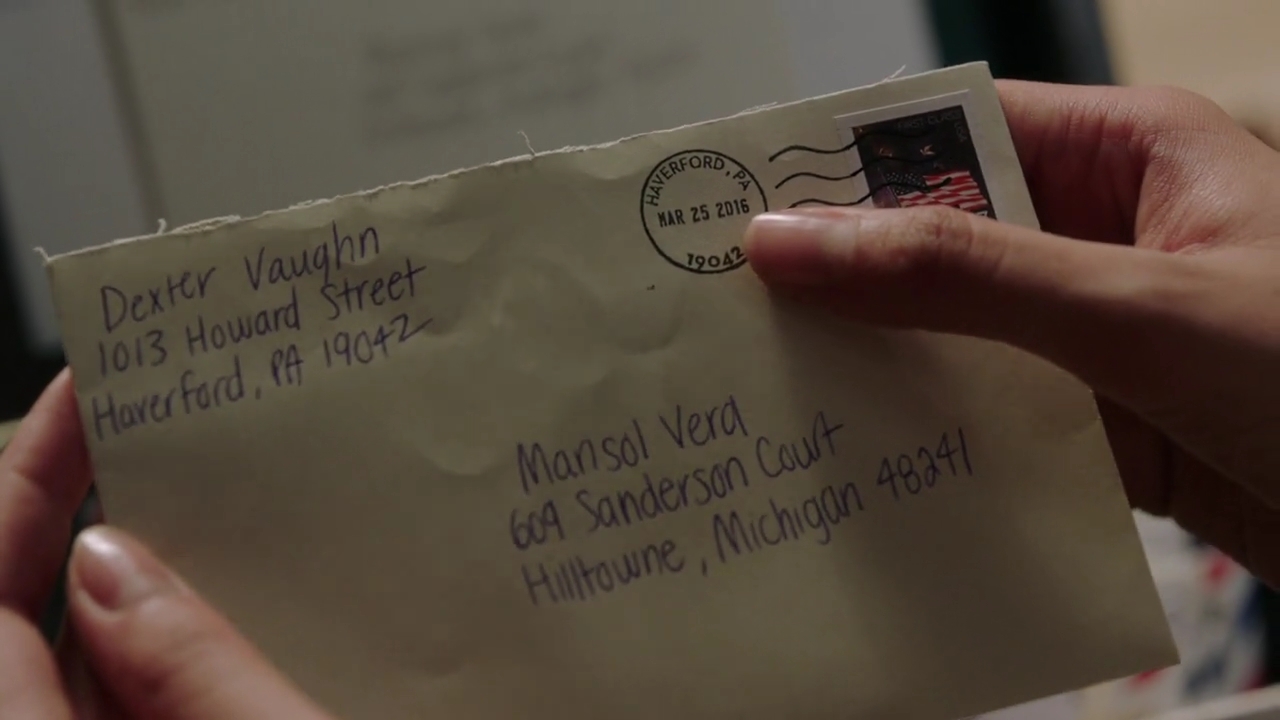 Dexter Vaughn
1013 Howard Street
Haverford, PA 19042
HAVERFORD, PA
MAR 25 2016
19042
FIRST CLASS
Marisol Vera
609 Sanderson Court
Hilltowne, Michigan 48241